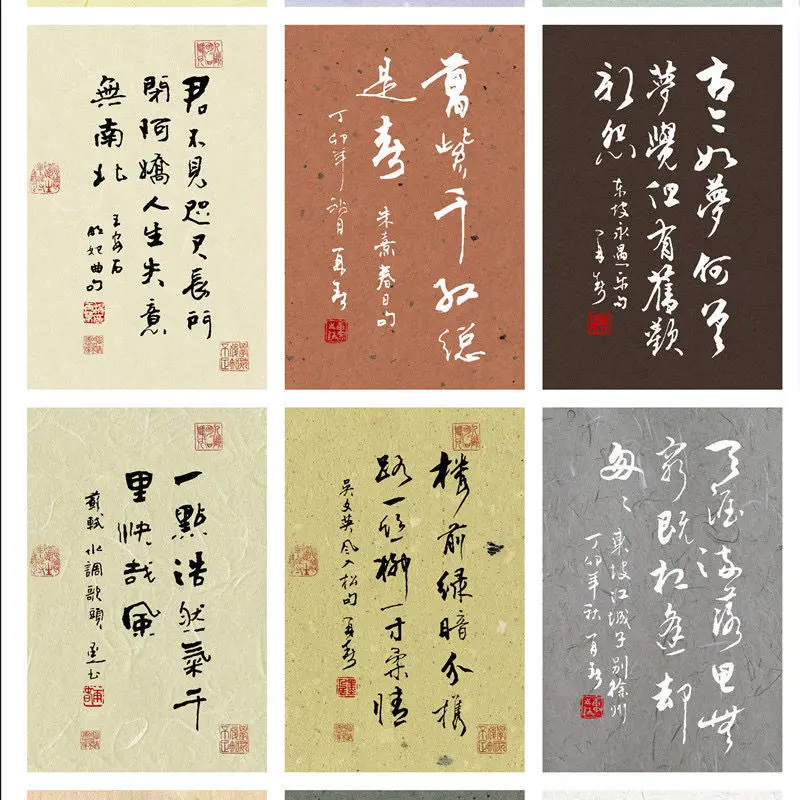 君不見咫尺長門
閉阿嬌人生失意
無南北
王安石
明妃曲句
萬紫千紅總
是春
朱熹春日句
丁卯年秋月
古今如夢何曾
夢覺但有舊歡
新怨
东坡永遇乐句
一點浩然氣千
里快哉風
蘇軾水調歌頭
樓前綠暗分攜
路一丝柳一寸柔情
吴文英风入松句
天涯流落思無
窮既相逢却
匆匆
東坡江城子別徐州
丁卯年秋